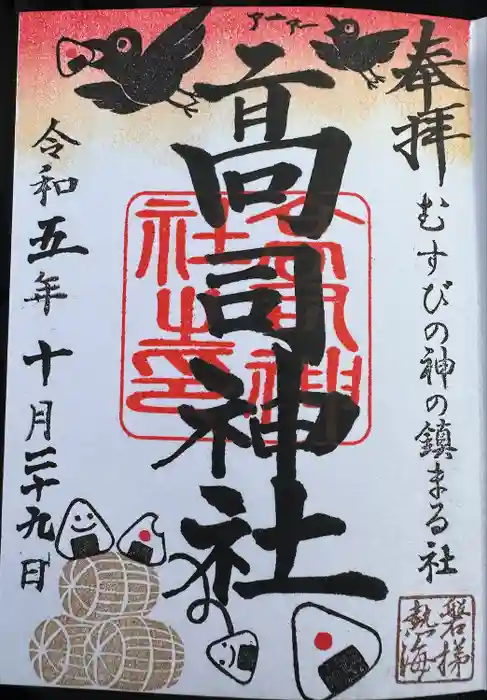 奉拝
むすびの神の鎮まる社
磐梯
熱海
アーアー
高司神社
高司神
社之印
令和五年十月二十九日